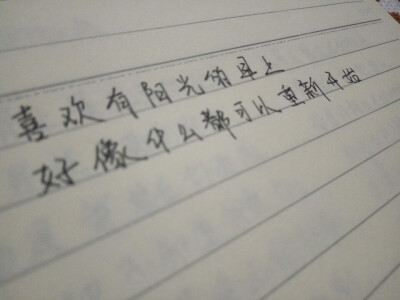 喜欢有阳光的早上
好像什么都可以重新开始